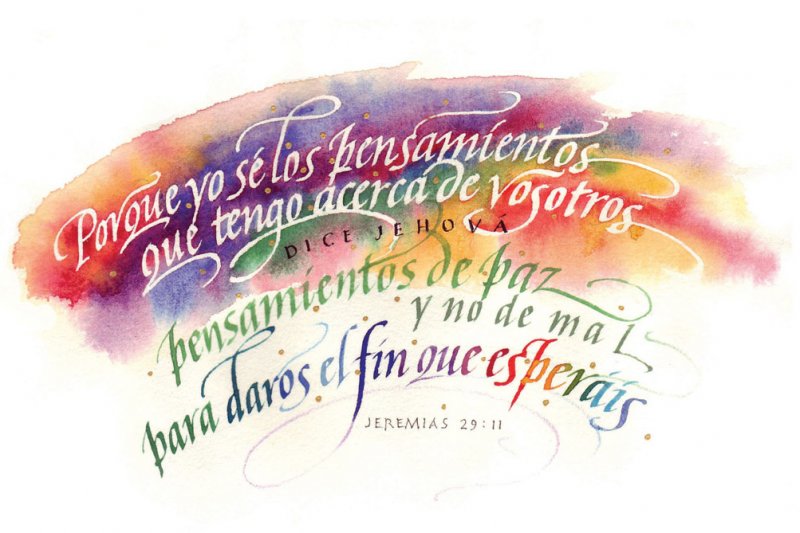 Porque yo sé los pensamientos
que tengo acerca de vosotros
DICE JEHOVÁ
pensamientos de paz
y no de mal
para daros el fin que esperáis
JEREMIAS 29:11